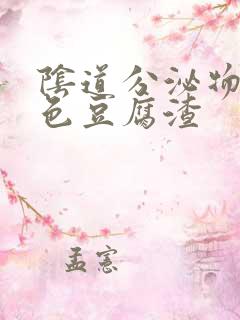 陰道分泌物
色豆腐渣
孟憲